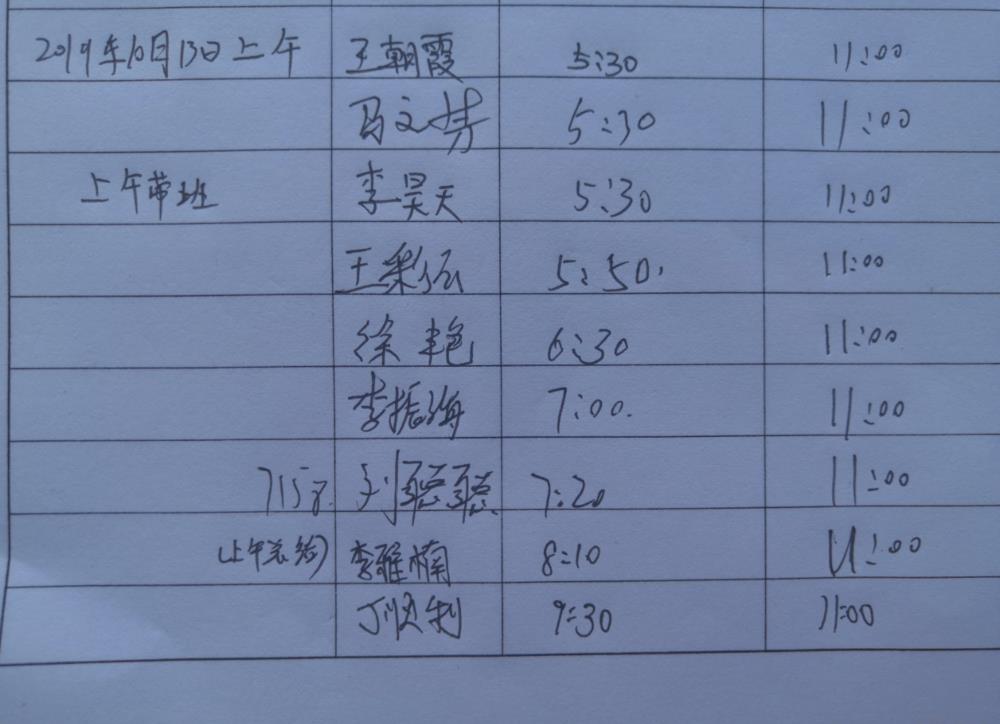 2019年10月13日上午 王朝霞 5:30 11:00
马文芳 5:30 11:00
上午带班 李昊天 5:30 11:00
王彩云 5:50. 11:00
徐艳 6:30 11:00
李振海 7:00. 11:00
刘聪聪 7:20 11:00
(上午总结) 李雅楠 8:10 11:00
丁顺利 9:30 11:00